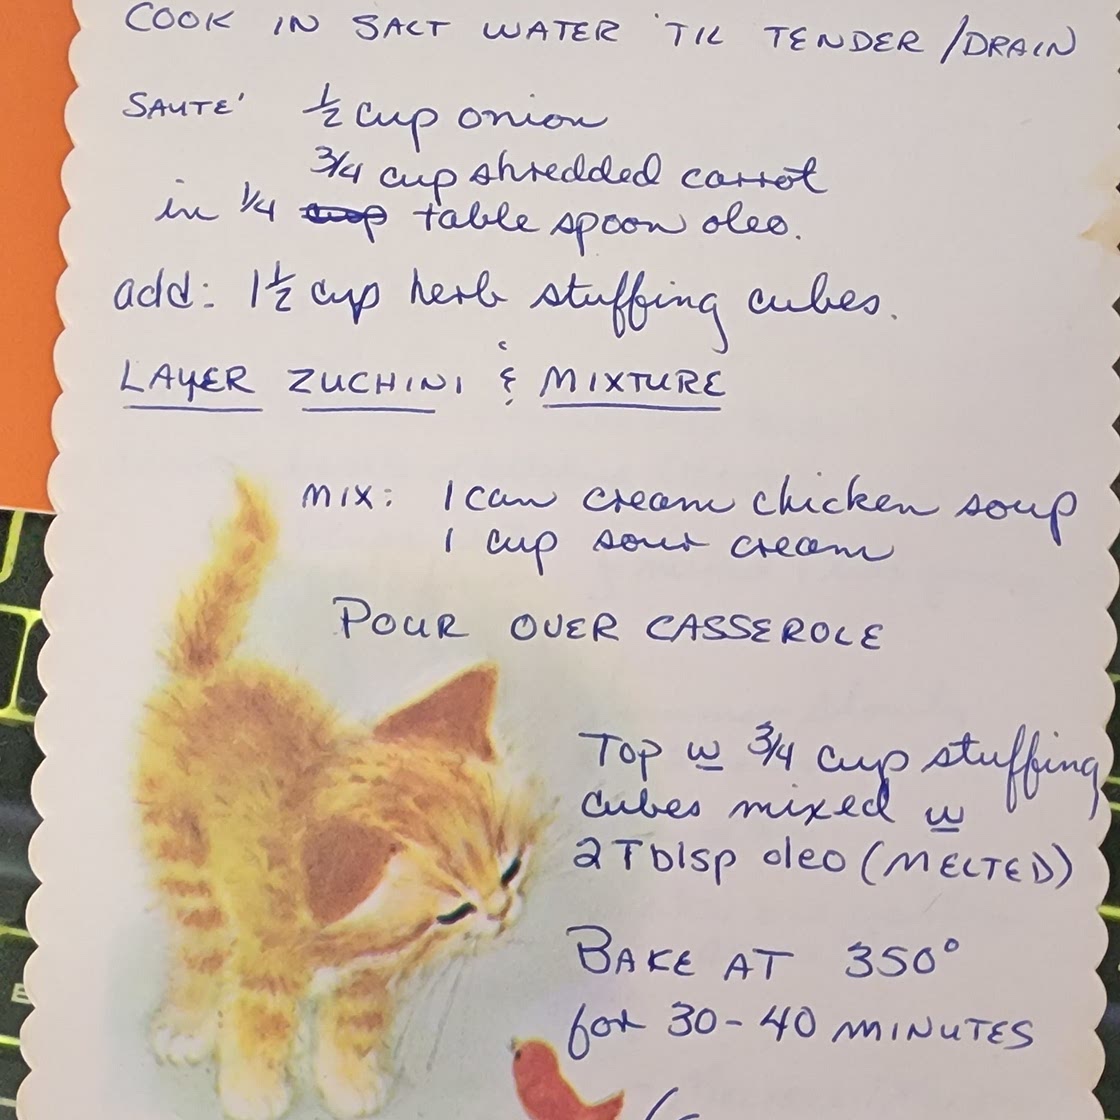 COOK IN SALT WATER 'TIL TENDER /DRAIN
SAUTE' 1/2 cup onion
3/4 cup shredded carrot
in 1/4 cup table spoon oleo.
add: 1 1/2 cup herb stuffing cubes.
LAYER ZUCHINI & MIXTURE
MIX: 1 can cream chicken soup
1 cup sour cream
POUR OVER CASSEROLE
TOP w 3/4 cup stuffing
cubes mixed w
2 Tblsp oleo (MELTED)
BAKE AT 350°
for 30-40 MINUTES